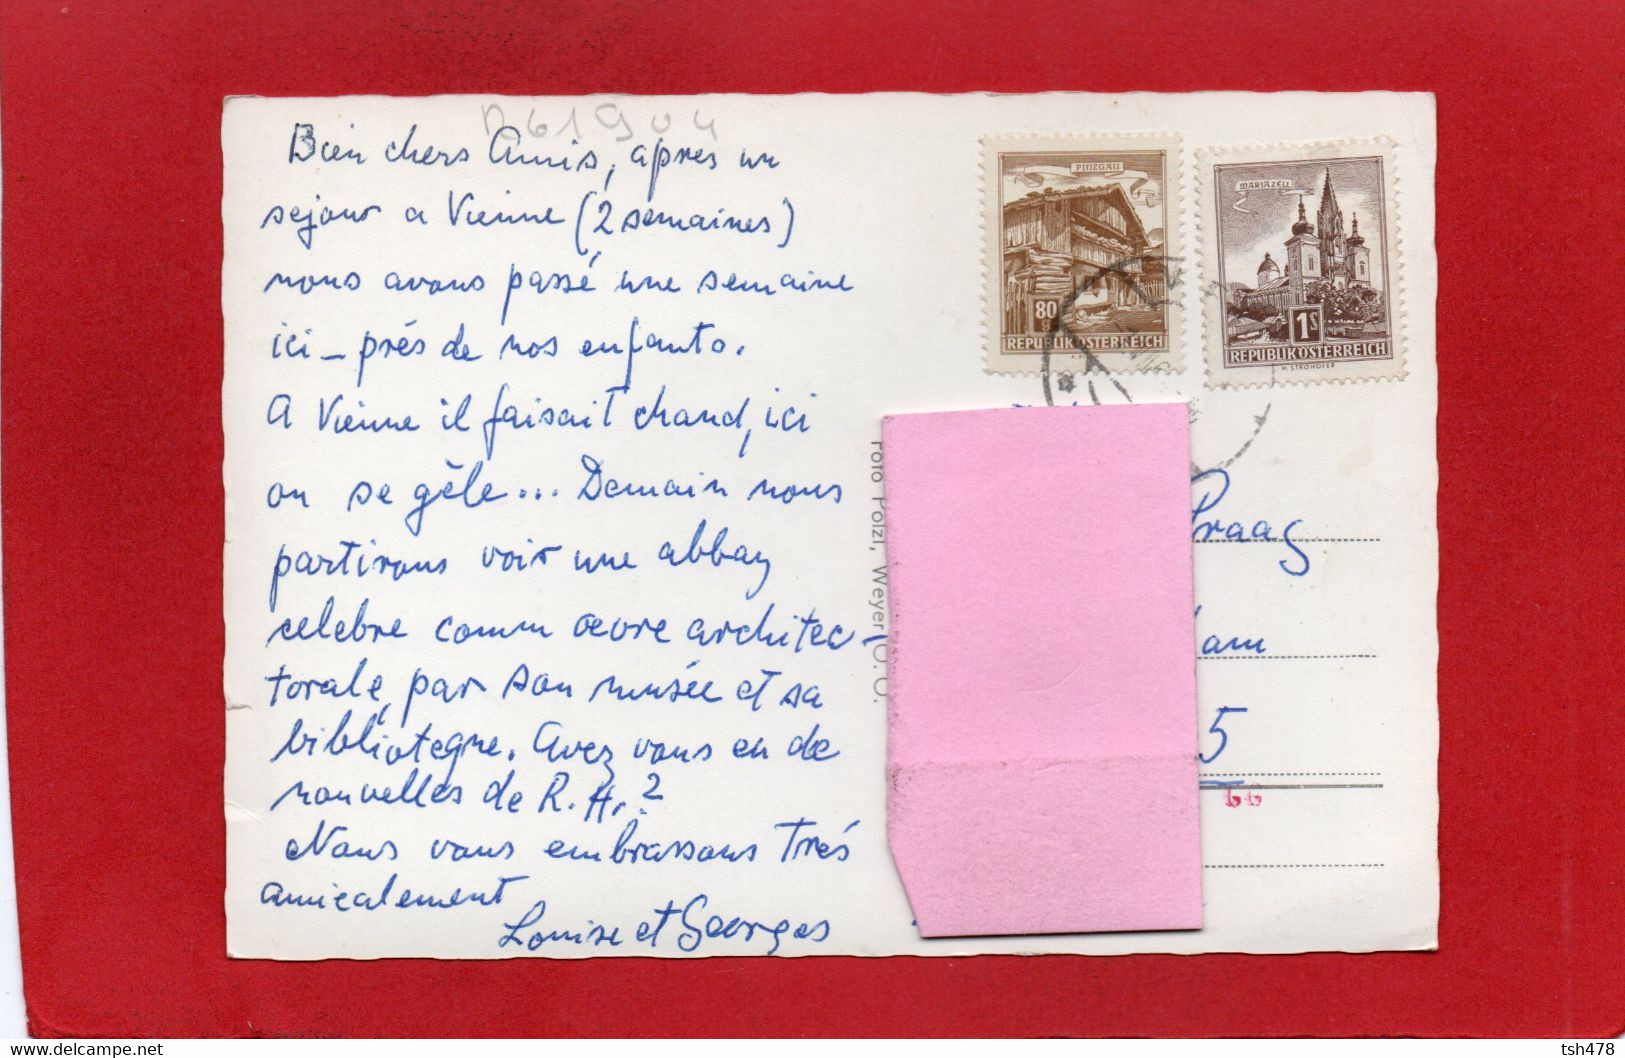 D61904
Bien chers Amis, après un
sejour a Vienne (2 semaines)
nous avons passé une semaine
ici – prés de nos enfants.
A Vienne il faisait chaud, ici
on se gèle... Demain nous
partirons voir une abbay
celebre comm oevre architec-
torale, par son musée et sa
bibliotegne. Avez vous eu de
nouvelles de R. H.?
Nous vous embrassons Trés
amicalement
Louise et Georges
PINZGAU
80
REPUBLIK ÖSTERREICH
MARIAZELL
1S
REPUBLIK ÖSTERREICH
H. STROHOFER
Foto Pölzl, Weyer O. Ö.
Praag
lam
5
66
tsh478
delcampe.net